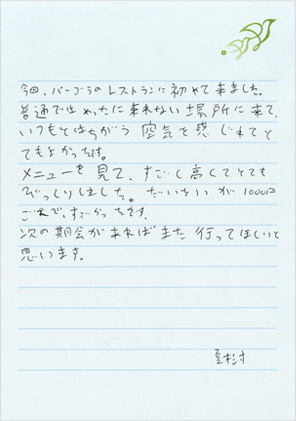 今回、パーゴラのレストランに初めて来ました。
普通ではめったに来れない場所に来て、
いつもとはちがう空気を感じれてと
てもよかったです。
メニューを見て、すごく高くてとても
びっくりしました。だいたいが1000円
ごえで、すごかったです。
次の期会があればまた行ってほしいと
思います。